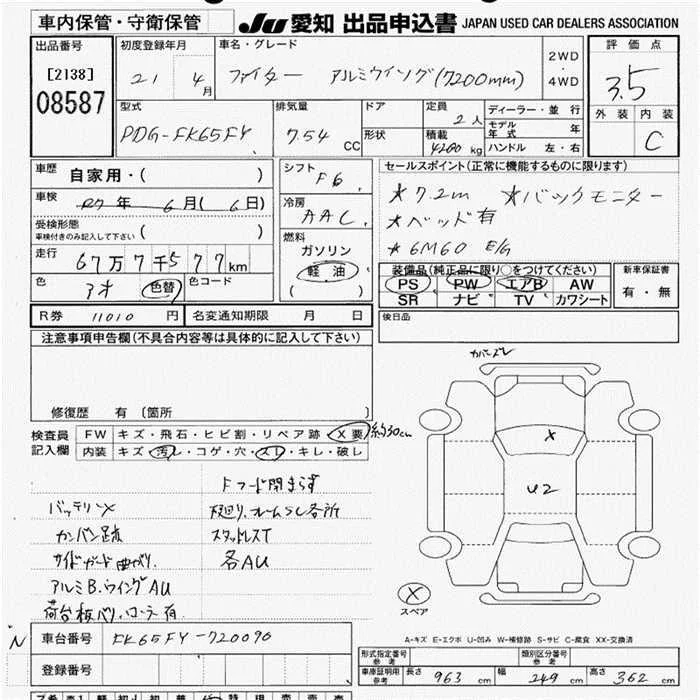 車内保管・守衛保管
JU 愛知 出品申込書 JAPAN USED CAR DEALERS ASSOCIATION
出品番号
[2138]
08587
初度登録年月
21 4月
車名・グレード
ファイター アルミウイング(7200mm)
2WD
4WD
評価点
3.5
外装 内装
C
型式
PDG-FK65FY
排気量
7.54 CC
ドア
形状
定員
2人
積載
4200 kg
ディーラー・並行
モデル年式 年
ハンドル 左・右
車歴
自家用・( )
車検
R7年 6月(6日)
受検形態
車検付きのみ記入して下さい ( )
走行
67万7千577km
色
アオ 色替
色コード
シフト
F6
冷房
AAC
燃料
ガソリン
軽油
( )
セールスポイント(正常に機能するものに限ります)
*7.2m *バックモニター
*ベッド有
*6M60 E/G
装備品(純正品に限り○をつけてください)
PS PW エアB AW
SR ナビ TV カワシート
新車保証書
有・無
R券 11010 円
名変通知期限 月 日
後日品
注意事項申告欄(不具合内容等は具体的に記入して下さい)
修復歴 有 〔箇所 〕
検査員記入欄
FW キズ・飛石・ヒビ割・リペア跡・X要 約30cm
内装 キズ・汚レ・コゲ・穴・スレ・キレ・破レ
Fフード閉まらず
バッテリ×
下廻り、フレームSC各所
カンバン足跡
スタッドレスT
サイドガード曲がり
各AU
アルミB.ウイングAU
荷台板バリ、コーラ有
カバーズレ
X
U2
X
スペア
A-キズ E-エクボ U-凹み W-補修跡 S-サビ C-腐食 XX-交換済
N
車台番号
FK65FY-720090
登録番号
型式指定番号
参考
類別区分番号
参考
車庫証明用
参考
長さ 963 cm
幅 249 cm
高さ 362 cm